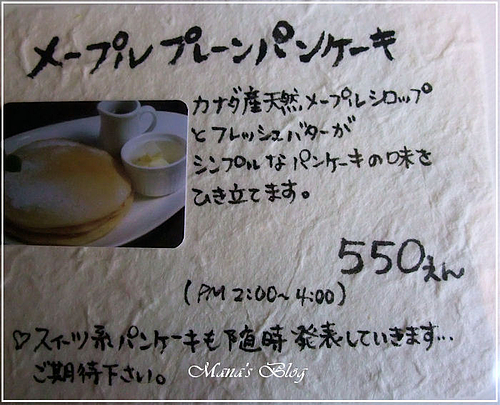 メープルプレーンパンケーキ
カナダ産天然メープルシロップ
とフレッシュバターが
シンプルなパンケーキの味を
ひき立てます。
550えん
(PM 2:00~4:00)
♡スイーツ系パンケーキも随時発表していきます…
ご期待下さい。
Mana's Blog